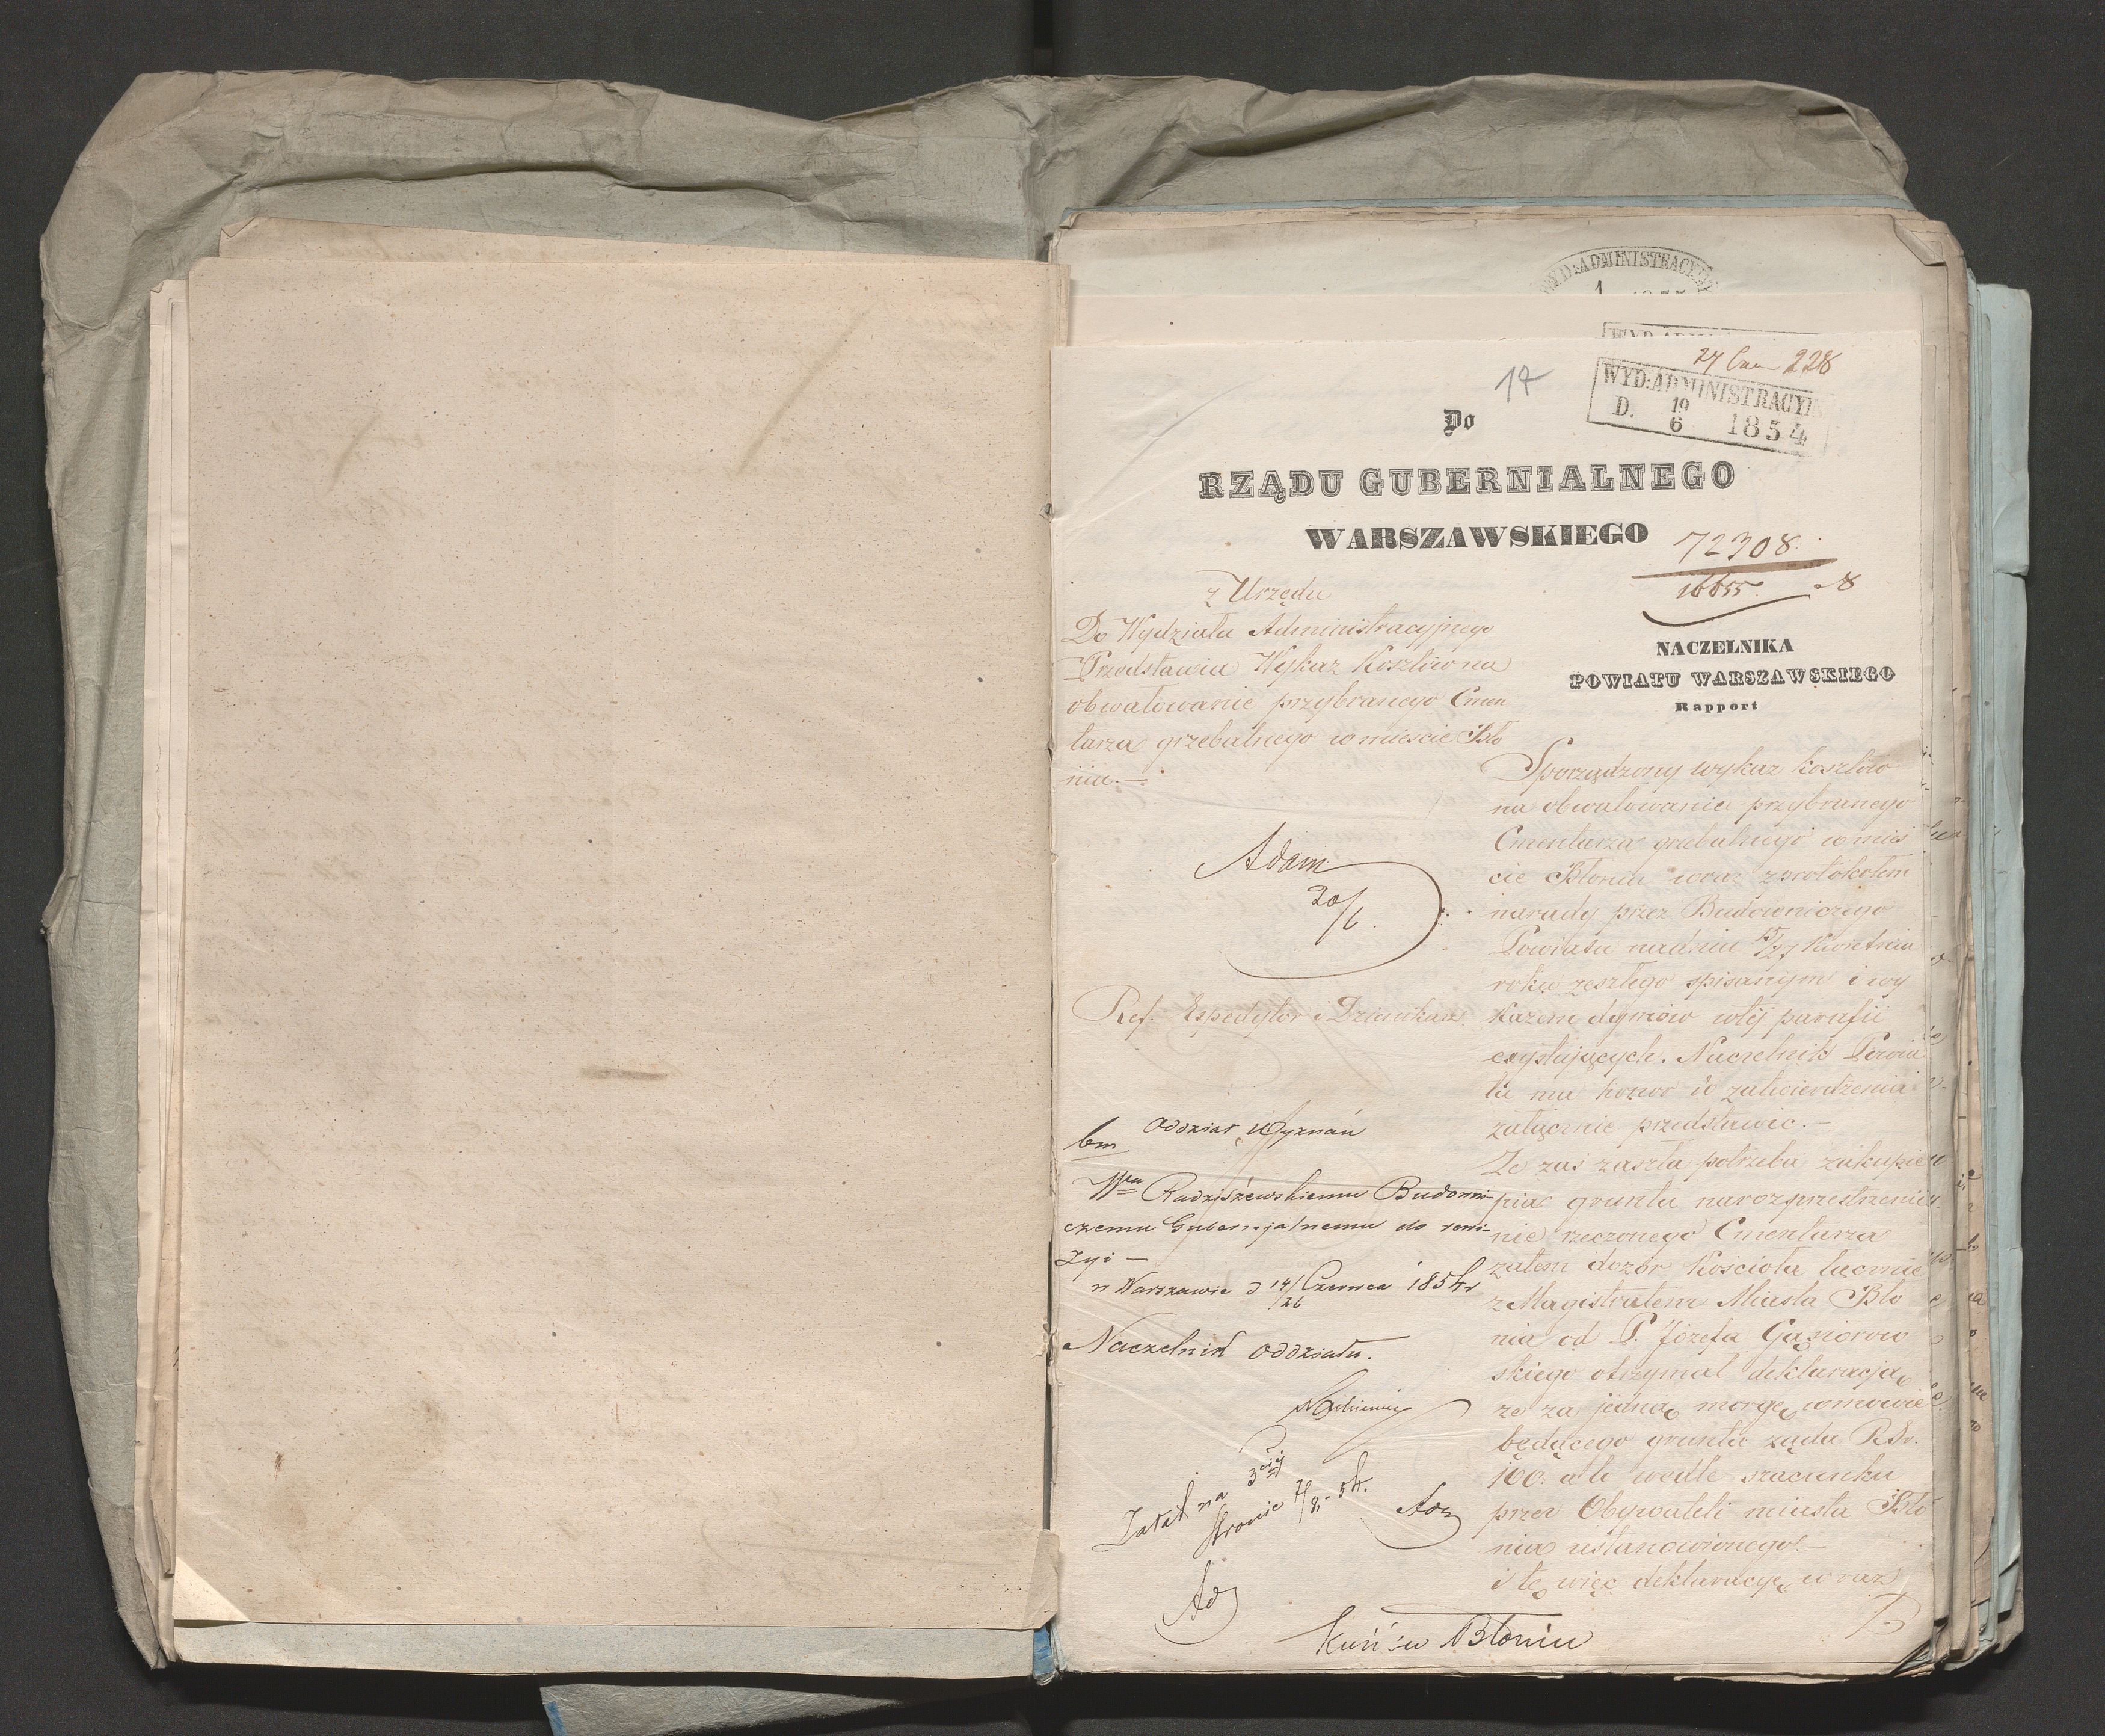 WYD:ADMINISTRACYJN
27 Czer 228
WYD:ADMINISTRACYJ
D. 19/6 1854
14
Do
RZĄDU GUBERNIALNEGO
WARSZAWSKIEGO
72308.
16655.
z Urzędu
Do Wydziału Administracyjnego
Przedstawia Wykaz Kosztów na
obwałowanie przybranego Cmen
tarza grzebalnego w mieście Bło
niu.—
Adam
20/6.
Ref. Expedytor i Dziennikarz
6m Oddział Wyznań
Wmu Radziszewskiemu Budowni-
czemu Gubernjalnemu do rewi-
zyi —
w Warszawie d 14/26 Czerwca 1854 r
Naczelnik Oddziału.
Załat na 3ciej
stronie 7/8.- 54.
Ad
Kość: w Błoniu
NACZELNIKA
POWIATU WARSZAWSKIEGO
Rapport
Sporządzony wykaz kosztów
na obwałowanie przybranego
Cmentarza grzebalnego w mieś
cie Błoniu wraz z protokołem
narady przez Budowniczego
Powiatu na dniu 15/27 Kwietnia
roku zeszłego spisanym i wy
kazem dymów w tej parafii
exystujących. Naczelnik Powia
tu ma honor do zatwierdzenia
załącznie przedstawić.—
Że zaś zaszła potrzeba zakupie
nia gruntu na rozprzestrzenie
nie rzeczonego Cmentarza
zatem dozór Kościoła łącznie
z Magistratem Miasta Bło
nia od P. Józefa Gąsiorow
skiego otrzymał deklaracją
że za jedną morgę w mowie
będącego gruntu żąda RSr.
100. a to wedle szacunku
przez Obywateli miasta Bło
nia ustanowionego.—
i tę więc deklaracyę wraz